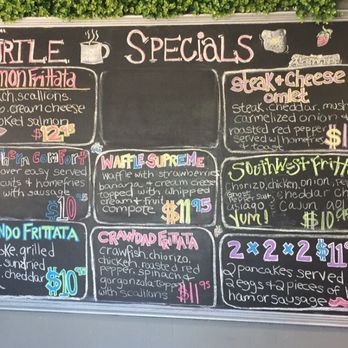 RILE SPECIALS
mon Frittata
ch, scallions,
cream cheese
oked salmon
$12.95
Steak & Cheese
Omlet
steak, cheddar, mush
carmelized onion &
roasted red pepper
served w/ homefries
& toast
$1
ern Comfort
over easy served
cuits & homefries
with sausage
$10
Waffle Supreme
Waffle with strawberries
banana & cream cheese
topped with whipped
cream & fruit
compote $11.95
Southwest Fritt
chorizo, chicken, onion,
cheddar
& cajun
YUM! $10
ndo Frittata
oke, grilled
sundried
, cheddar $10
Crawdad Frittata
crawfish, chorizo,
chicken, roasted red
pepper, spinach &
gorgonzola topped
with scallions $11.95
2x2x2 $11
2 pancakes served
2 eggs & 2 pieces of
ham or sausage